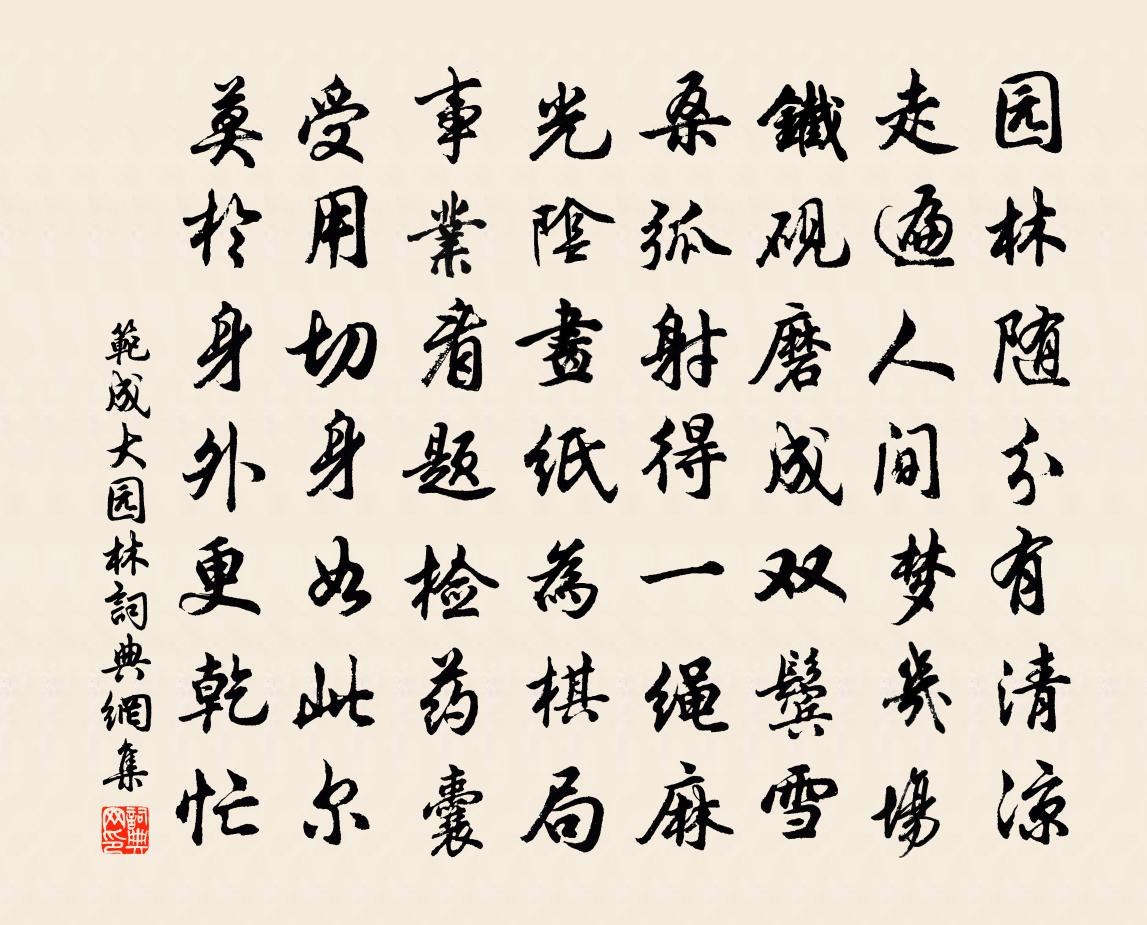 园林随分有清凉
走遍人间梦几場
鐵砚磨成双鬓雪
桑弧射得一绳麻
光陰畫纸為棋局
事業看题检药囊
受用切身如此尔
莫於身外更乾忙
範成大园林詞典網集
詞典网印